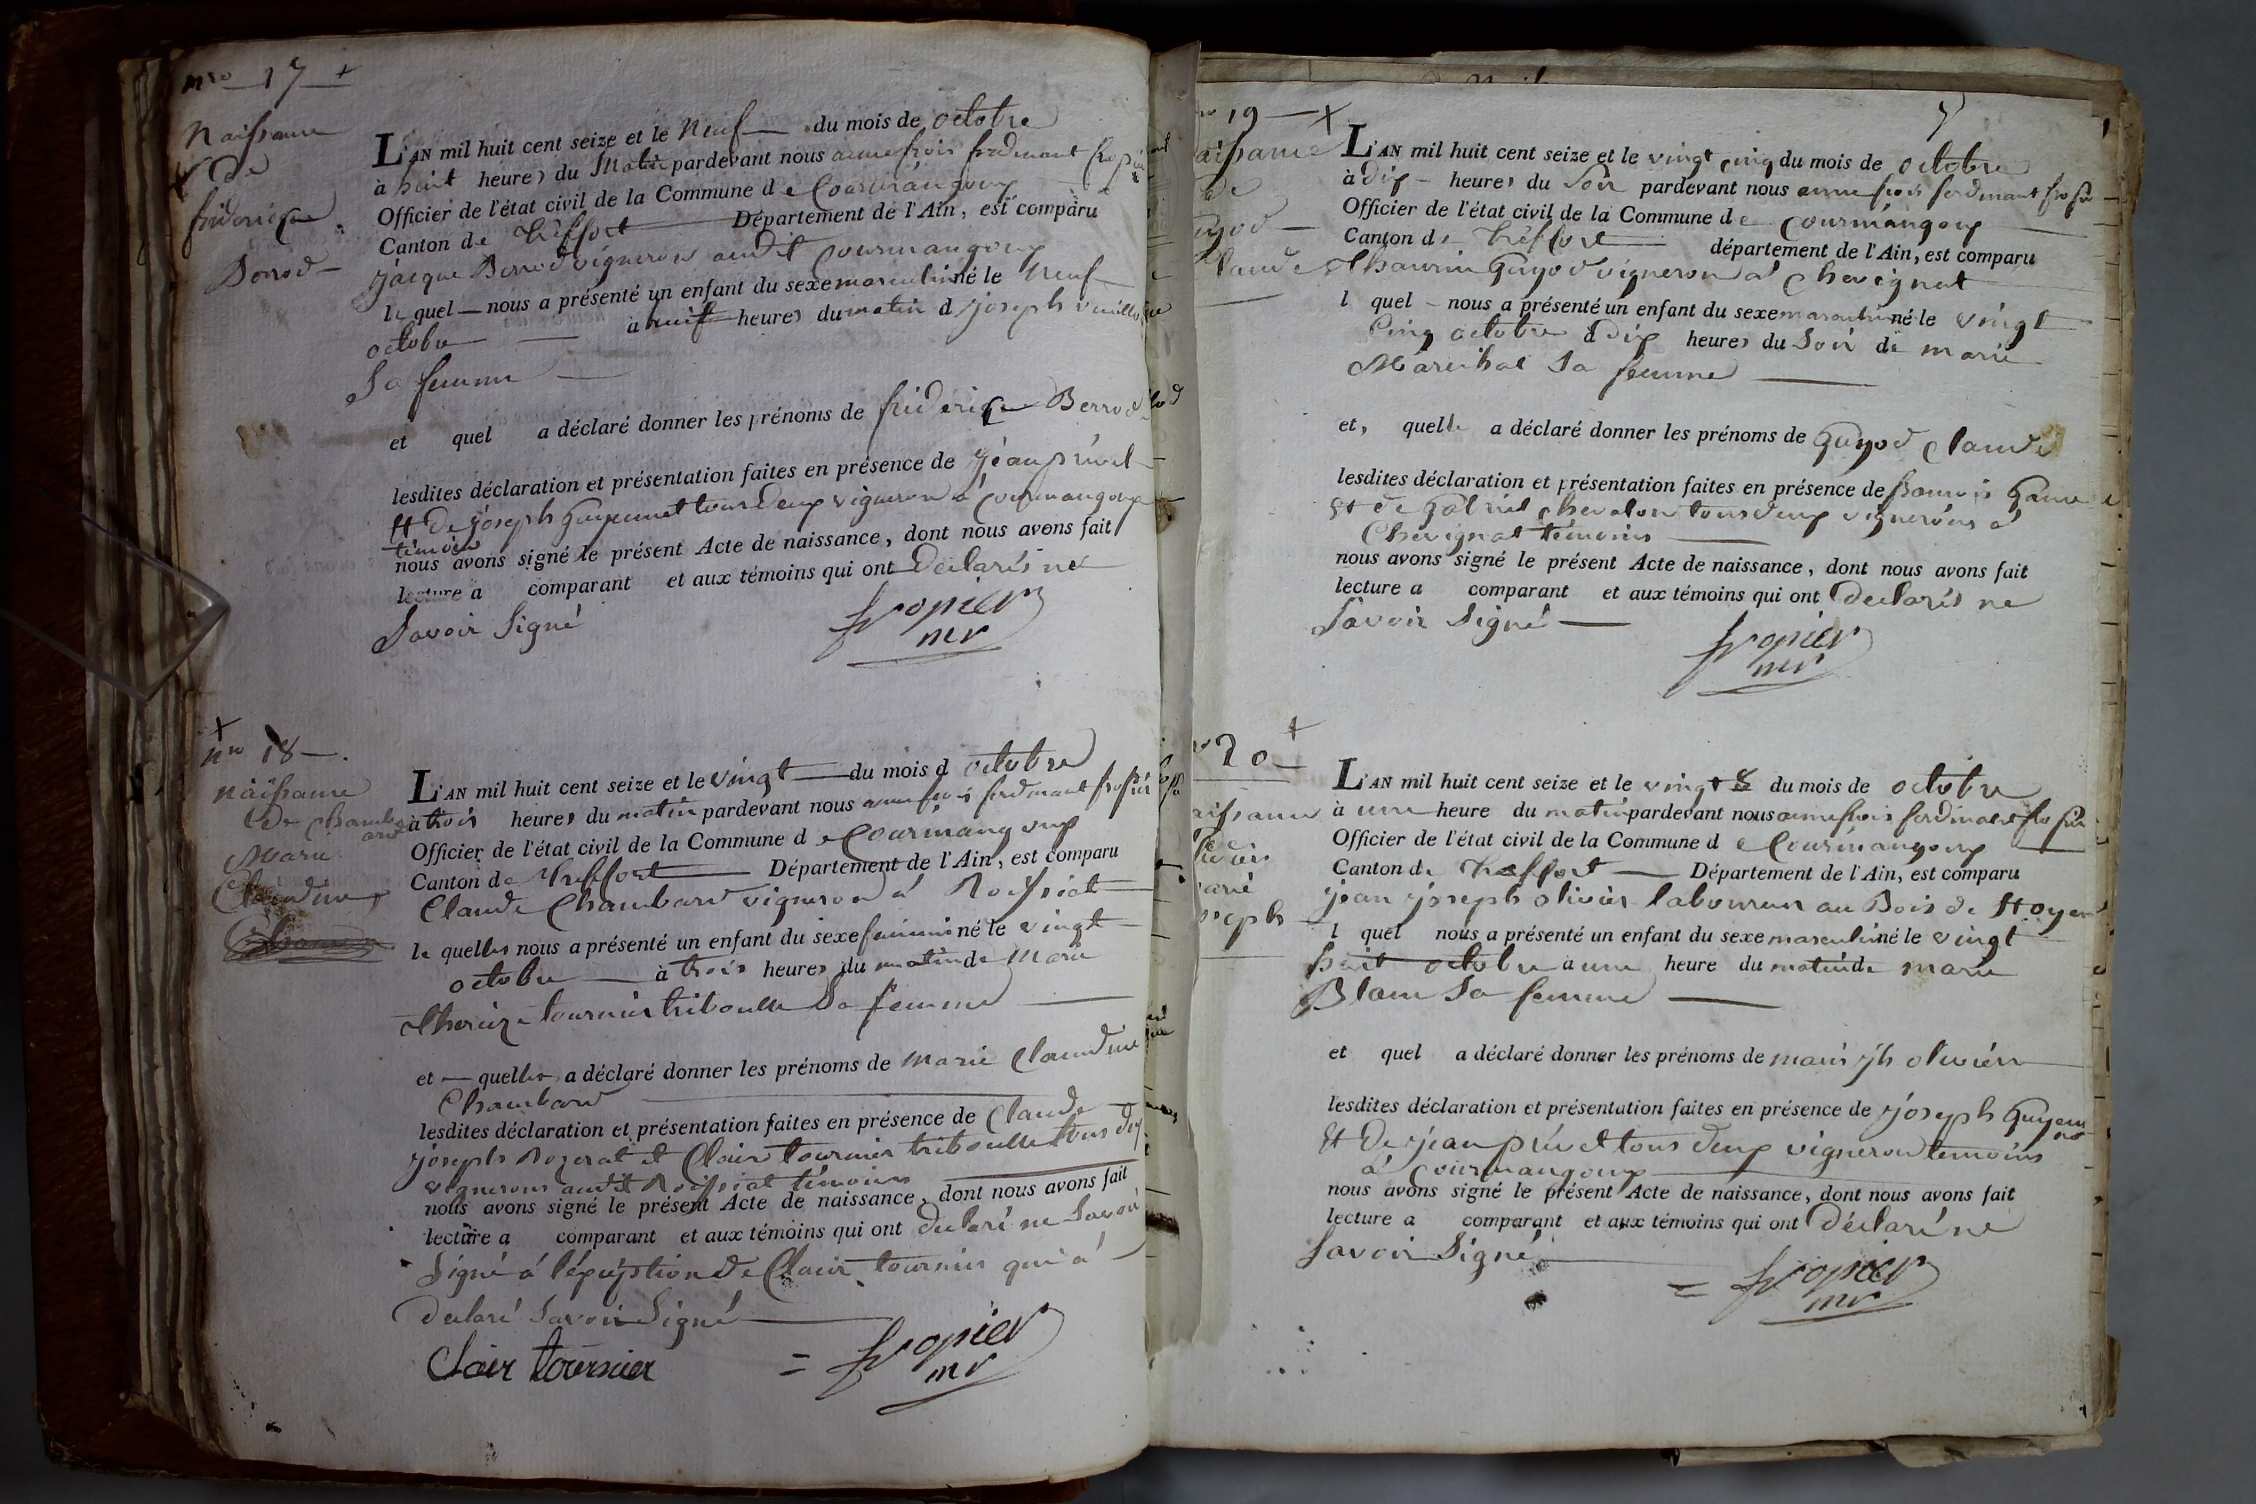 nro 17 +
Naissance
de
friderique
Berrod
L'AN mil huit cent seize et le Neuf du mois de octobre
à huit heures du Matin pardevant nous anne frois ferdinant fropier
Officier de l'état civil de la Commune de Courmangoux
Canton de Treffort Département de l'Ain, est comparu
jacque Berrod vigneron audit Courmangoux
le quel nous a présenté un enfant du sexe masculin né le Neuf
octobre à huit heures du matin d joseph
sa femme
et quel a déclaré donner les prénoms de friderique Berrod
lesdites déclaration et présentation faites en présence de jean privet
Et De joseph Guyennet tous deux vigneron à Courmangoux
témoins
nous avons signé le présent Acte de naissance, dont nous avons fait
lecture a comparant et aux témoins qui ont declarés ne
Savoir Signé
fropier
mr
+
nro 18
naissance
de Chambard
Marie
Claudine
L'AN mil huit cent seize et le vingt du mois d octobre
à trois heures du matin pardevant nous anne frois ferdinant fropier
Officier de l'état civil de la Commune de Courmangoux
Canton de Treffort Département de l'Ain, est comparu
Claude Chambard vigneron à Roissiat
le quelles nous a présenté un enfant du sexe feminin né le vingt
octobre à trois heures du matin de Marie
therèze tournier triboulle Sa femme
et quelles a déclaré donner les prénoms de marie Claudine
Chambard
lesdites déclaration et présentation faites en présence de Claude
joseph Rozerat et Clair tournier triboulle tous deux
vignerons audit Roissiat témoins
nous avons signé le présent Acte de naissance, dont nous avons fait
lecture a comparant et aux témoins qui ont declaré ne Savoir
Signé à l'éxception de Clair tournier qui à
declaré Savoir Signé
Clair tournier
= fropier
mr
19 +
aissance
de
uyod
laude
L'AN mil huit cent seize et le vingt cinq du mois de octobre
à dix heures du Soir pardevant nous anne frois ferdinant fropier
Officier de l'état civil de la Commune de Courmangoux
Canton de Treffort département de l'Ain, est comparu
thaurin Guyod vigneron à Chevignat
l quel nous a présenté un enfant du sexe masculin né le vingt
Cinq octobre à dix heures du Soir de marie
Marechal Sa femme
et, quelle a déclaré donner les prénoms de Guyod Claude
lesdites déclaration et présentation faites en présence de francois
Et de Gabriel Chevalon tous deux vignerons à
Chevignat témoins
nous avons signé le présent Acte de naissance, dont nous avons fait
lecture a comparant et aux témoins qui ont declarés ne
Savoir Signé
fropier
mr
20 +
aissance
livier
arie
oseph
L'AN mil huit cent seize et le vingt 8 du mois de octobre
à une heure du matin pardevant nous anne frois ferdinant fropier
Officier de l'état civil de la Commune de Courmangoux
Canton de Treffort Département de l'Ain, est comparu
jean joseph olivier laboureur au Bois de
l quel nous a présenté un enfant du sexe masculin né le vingt
huit octobre à une heure du matin de marie
Blanc Sa femme
et quel a déclaré donner les prénoms de marie jh olivier
lesdites déclaration et présentation faites en présence de joseph Guyennet
Et De jean privet tous deux vigneron temoins
à Courmangoux
nous avons signé le présent Acte de naissance, dont nous avons fait
lecture a comparant et aux témoins qui ont Déclaré ne
Savoir Signé
= fropier
mr